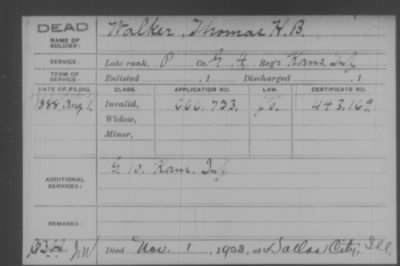 DEAD
NAME OF SOLDIER: Walker, Thomas H. B.
SERVICE: Late rank, P Co. G, Reg't Kans Inf
TERM OF SERVICE: Enlisted , 1 Discharged , 1
DATE OF FILING. CLASS. APPLICATION NO. LAW. CERTIFICATE NO.
1888 Aug 1. Invalid, 666.733 443.169
Widow,
Minor,
ADDITIONAL SERVICES: G 13. Kans. Inf
REMARKS:
Died Nov. 1, 1928, at Dallas City, Ill